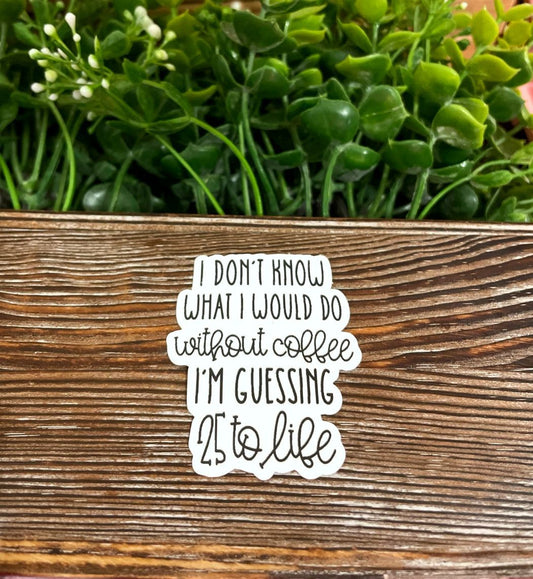 I DON'T KNOW
WHAT I WOULD DO
without coffee
I'M GUESSING
25 to life